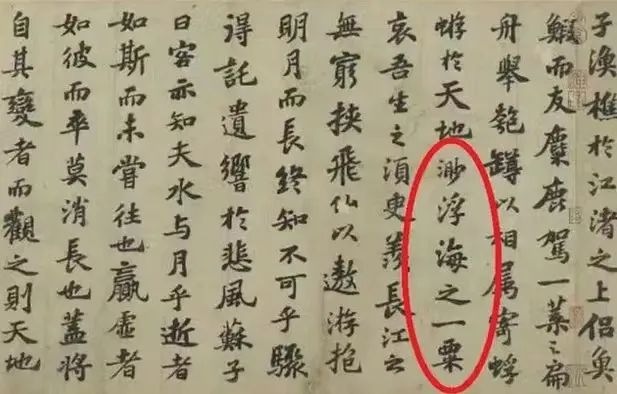 子漁樵於江渚之上侶魚
鰕而友麋鹿駕一葉之扁
舟舉匏罇以相属寄蜉
蝣於天地渺浮海之一粟
哀吾生之湏臾羨長江之
無窮挟飛仙以遨游抱
明月而長終知不可乎驟
得託遺響於悲風蘇子
曰客亦知夫水与月乎逝者
如斯而未甞往也贏虚者
如彼而卒莫消長也蓋將
自其變者而觀之則天地